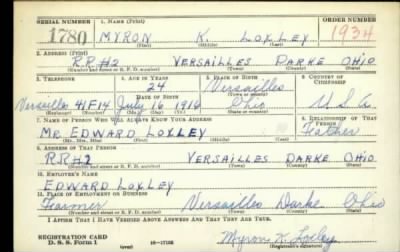 SERIAL NUMBER 1. NAME (Print) ORDER NUMBER
1780 MYRON K. LOXLEY 1934
(First) (Middle) (Last)
2. ADDRESS (Print)
RR#2 VERSAILLES DARKE OHIO
(Number and street or R. F. D. number) (Town) (County) (State)
3. TELEPHONE 4. AGE IN YEARS 5. PLACE OF BIRTH 6. COUNTRY OF CITIZENSHIP
24 Versailles
(Town or county)
DATE OF BIRTH
Versailles 41F14 July 16 1916 Ohio U.S.A.
(Exchange) (Number) (Mo.) (Day) (Yr.) (State or country)
7. NAME OF PERSON WHO WILL ALWAYS KNOW YOUR ADDRESS 8. RELATIONSHIP OF THAT PERSON
Mr EDWARD LOXLEY Father
(Mr., Mrs., Miss) (First) (Middle) (Last)
9. ADDRESS OF THAT PERSON
RR#2 VERSAILLES DARKE OHIO
(Number and street or R. F. D. number) (Town) (County) (State)
10. EMPLOYER'S NAME
EDWARD LOXLEY
11. PLACE OF EMPLOYMENT OR BUSINESS
Farmer Versailles Darke Ohio
(Number and street or R. F. D. number) (Town) (County) (State)
I AFFIRM THAT I HAVE VERIFIED ABOVE ANSWERS AND THAT THEY ARE TRUE.
REGISTRATION CARD
D. S. S. Form 1 (over) 16-17105 Myron K. Loxley
(Registrant's signature)